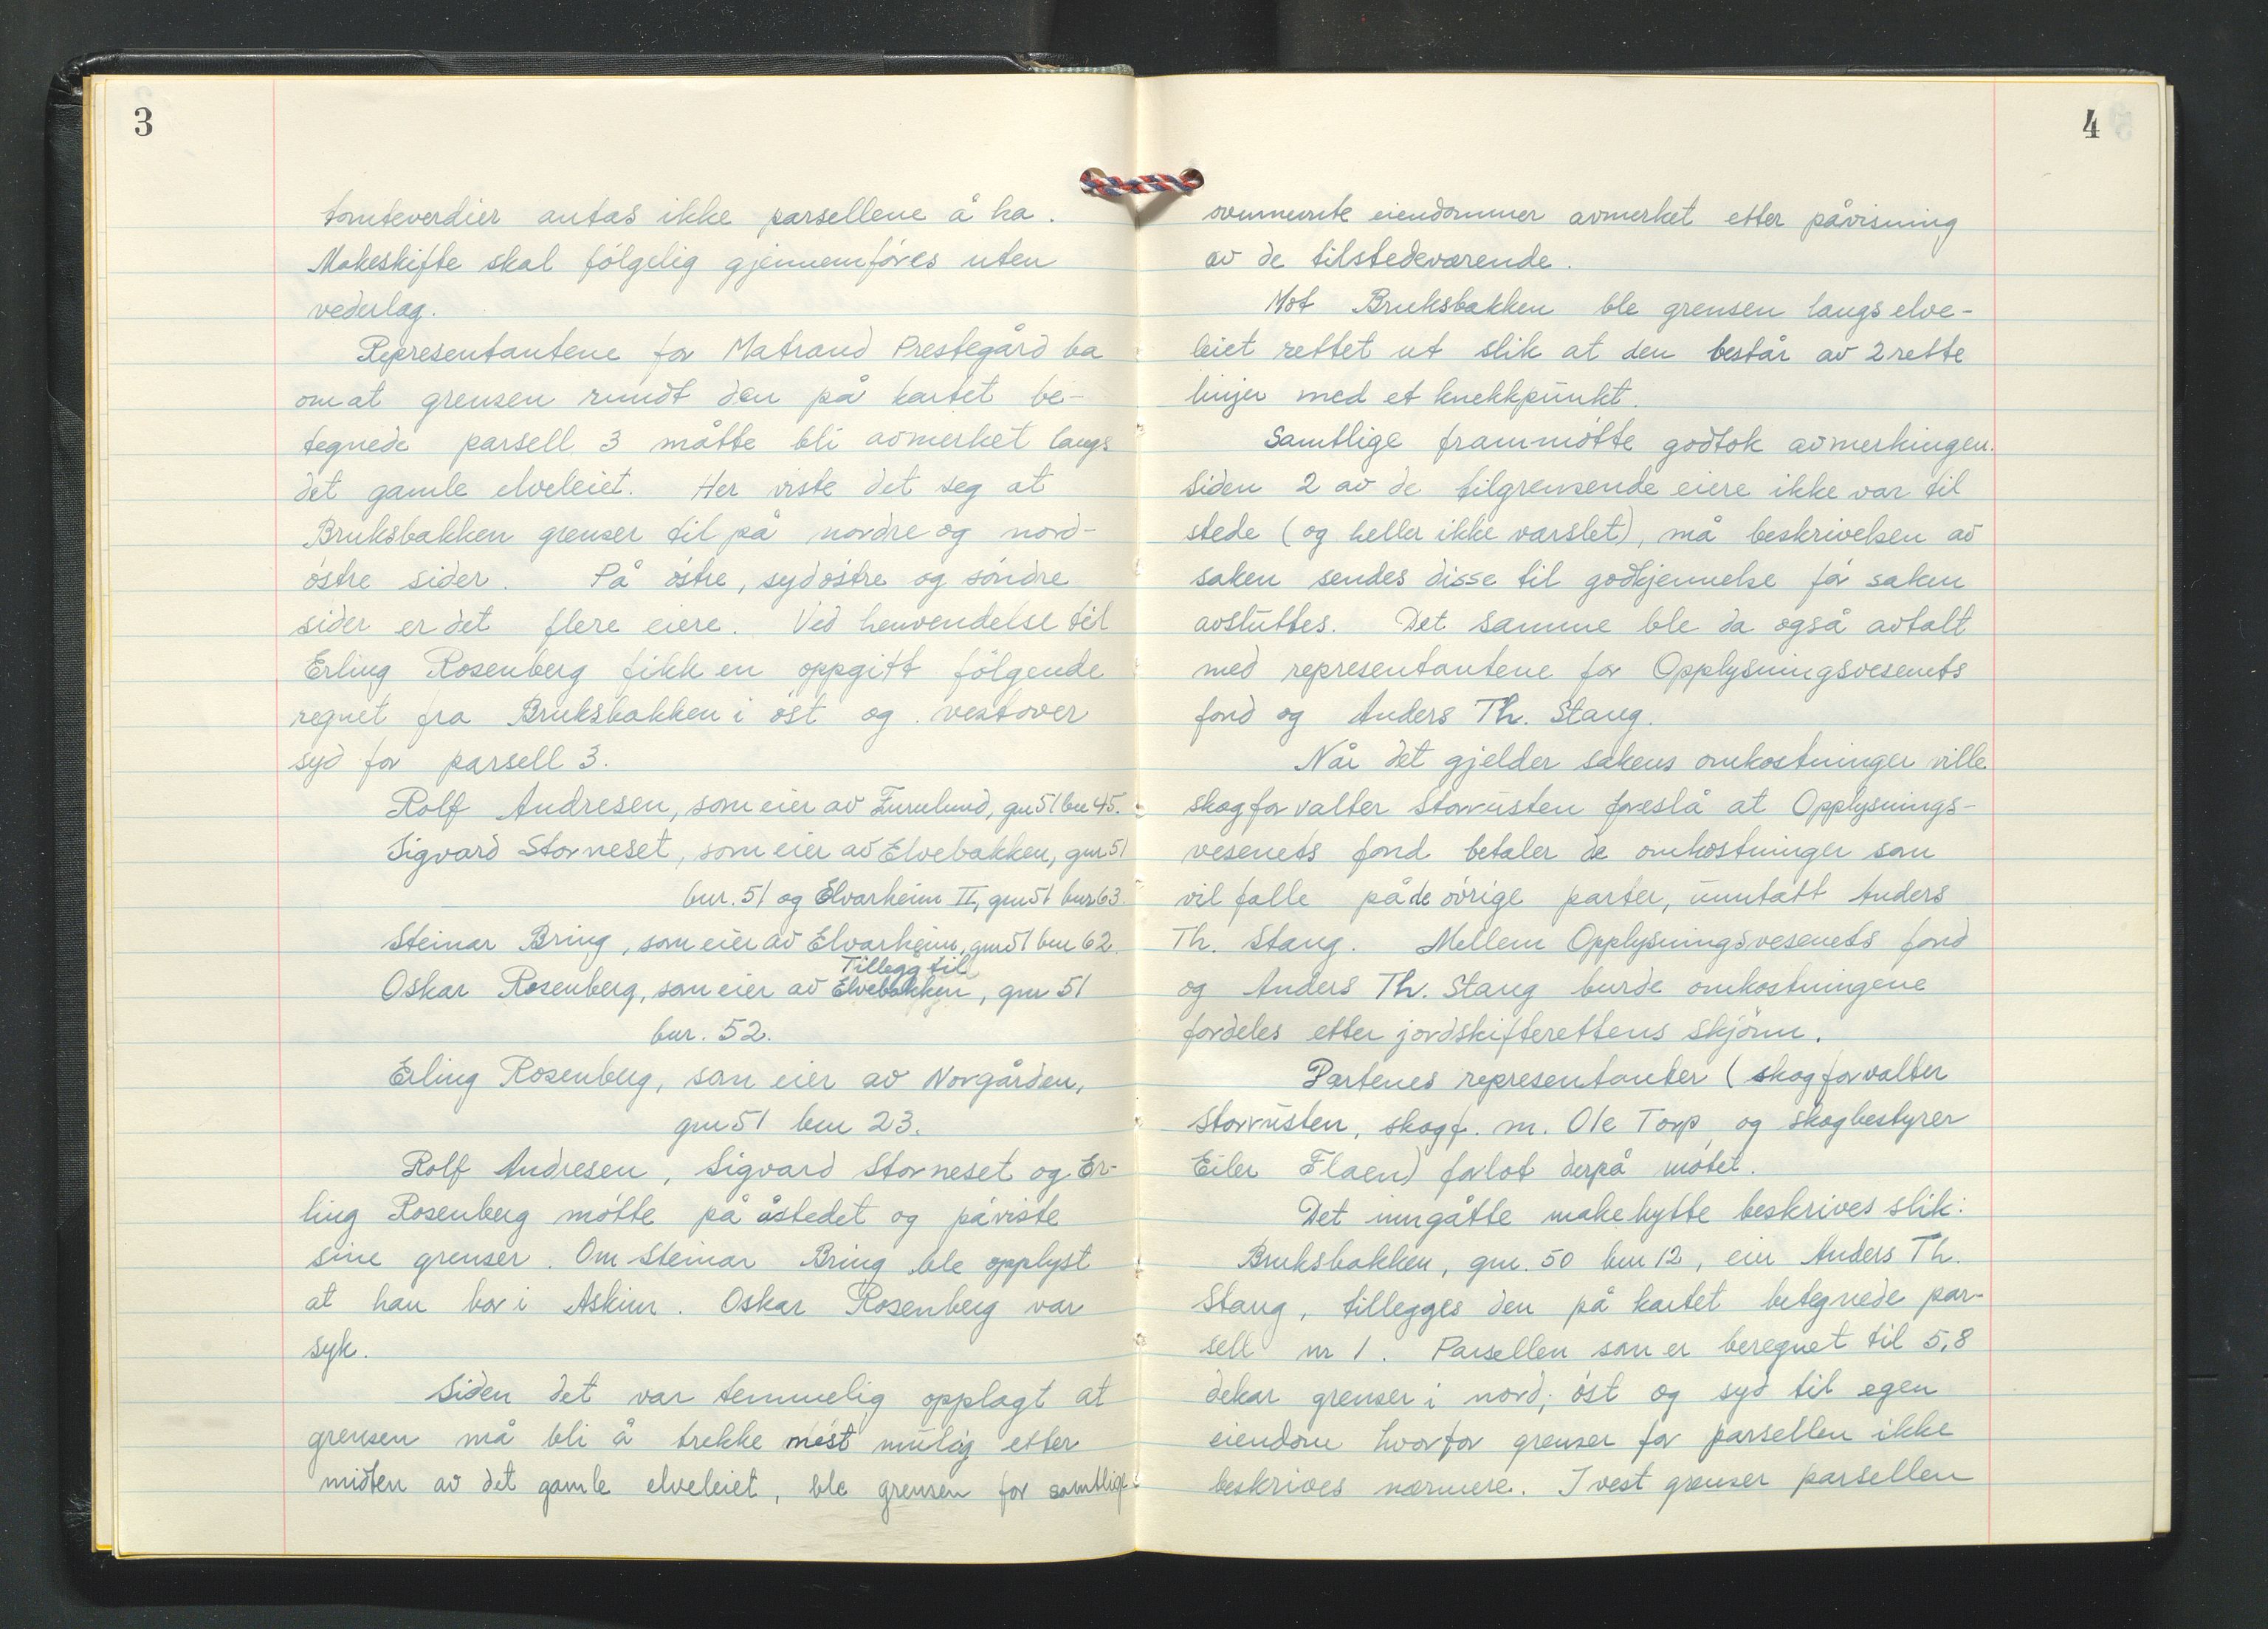 3
tomteverdier antas ikke parsellene å ha.
Makeskifte skal fölgelig gjennemföres uten
vederlag.
Representantene for Matrand Prestegård ba
om at grensen rundt den på kartet be-
tegnede parsell 3 måtte bli avmerket langs
det gamle elveleiet. Her viste det seg at
Bruksbakken grenser til på nordre og nord-
östre sider. På östre, sydöstre og söndre
sider er det flere eiere. Ved henvendelse til
Erling Rosenberg fikk en oppgitt fölgende
regnet fra Bruksbakken i öst og vestover
syd for parsell 3.
Rolf Andresen, som eier av Furulund, gnr 51 bnr 45.
Sigvard Storneset, som eier av Elvebakken, gnr 51
bnr. 51 og Elvarheim II, gnr 51 bnr 63.
Steinar Bring, som eier av Elvarheim, gnr 51 bnr 62.
Tillegg til
Oskar Rosenberg, som eier av Elvebakken, gnr 51
bnr. 52.
Erling Rosenberg, som eier av Norgården,
gnr 51 bnr 23.
Rolf Andresen, Sigvard Storneset og Er-
ling Rosenberg mötte på åstedet og påviste
sine grenser. Om Steinar Bring ble opplyst
at han bor i Askim. Oskar Rosenberg var
syk.
Siden det var temmelig opplagt at
grensen må bli å trekke mest mulig etter
midten av det gamle elveleiet, ble grensen for samtlige
4
ovennevnte eiendommer avmerket etter påvisning
av de tilstedeværende.
Mot Bruksbakken ble grensen langs elve-
leiet rettet ut slik at den består av 2 rette
linjer med et knekkpunkt.
Samtlige frammötte godtok avmerkingen.
Siden 2 av de tilgrensende eiere ikke var til
stede (og heller ikke varslet), må beskrivelsen av
saken sendes disse til godkjennelse för saken
avsluttes. Det samme ble da også avtalt
med representantene for Opplysningsvesenets
fond og Anders Th. Stang.
Når det gjelder sakens omkostninger ville
skogforvalter Storrusten foreslå at Opplysnings-
vesenets fond betaler de omkostninger som
vil falle på de övrige parter, unntatt Anders
Th. Stang. Mellem Opplysningsvesenets fond
og Anders Th. Stang burde omkostningene
fordeles etter jordskifterettens skjönn.
Partenes representanter (skogforvalter
Storrusten, skogf. m. Ole Torp, og skogbestyrer
Eiler Flaen) forlot derpå mötet.
Det inngåtte makebytte beskrives slik:
Bruksbakken, gnr. 50 bnr 12, eier Anders Th.
Stang, tillegges den på kartet betegnede par-
sell nr 1. Parsellen som er beregnet til 5,8
dekar grenser i nord, öst og syd til egen
eiendom hvorfor grenser for parsellen ikke
beskrives nærmere. I vest grenser parsellen